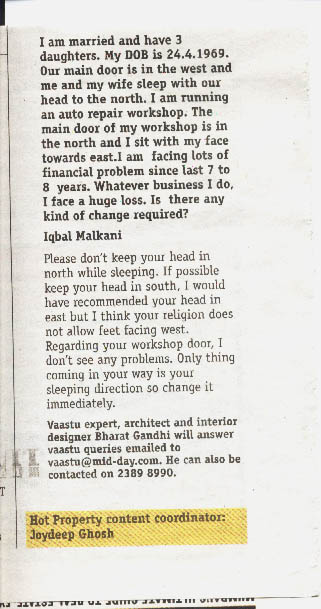 I am married and have 3
daughters. My DOB is 24.4.1969.
Our main door is in the west and
me and my wife sleep with our
head to the north. I am running
an auto repair workshop. The
main door of my workshop is in
the north and I sit with my face
towards east.I am facing lots of
financial problem since last 7 to
8 years. Whatever business I do,
I face a huge loss. Is there any
kind of change required?
Iqbal Malkani
Please don't keep your head in
north while sleeping. If possible
keep your head in south, I would
have recommended your head in
east but I think your religion does
not allow feet facing west.
Regarding your workshop door, I
don't see any problems. Only thing
coming in your way is your
sleeping direction so change it
immediately.
Vaastu expert, architect and interior
designer Bharat Gandhi will answer
vaastu queries emailed to
vaastu@mid-day.com. He can also be
contacted on 2389 8990.
T
Hot Property content coordinator:
Joydeep Ghosh